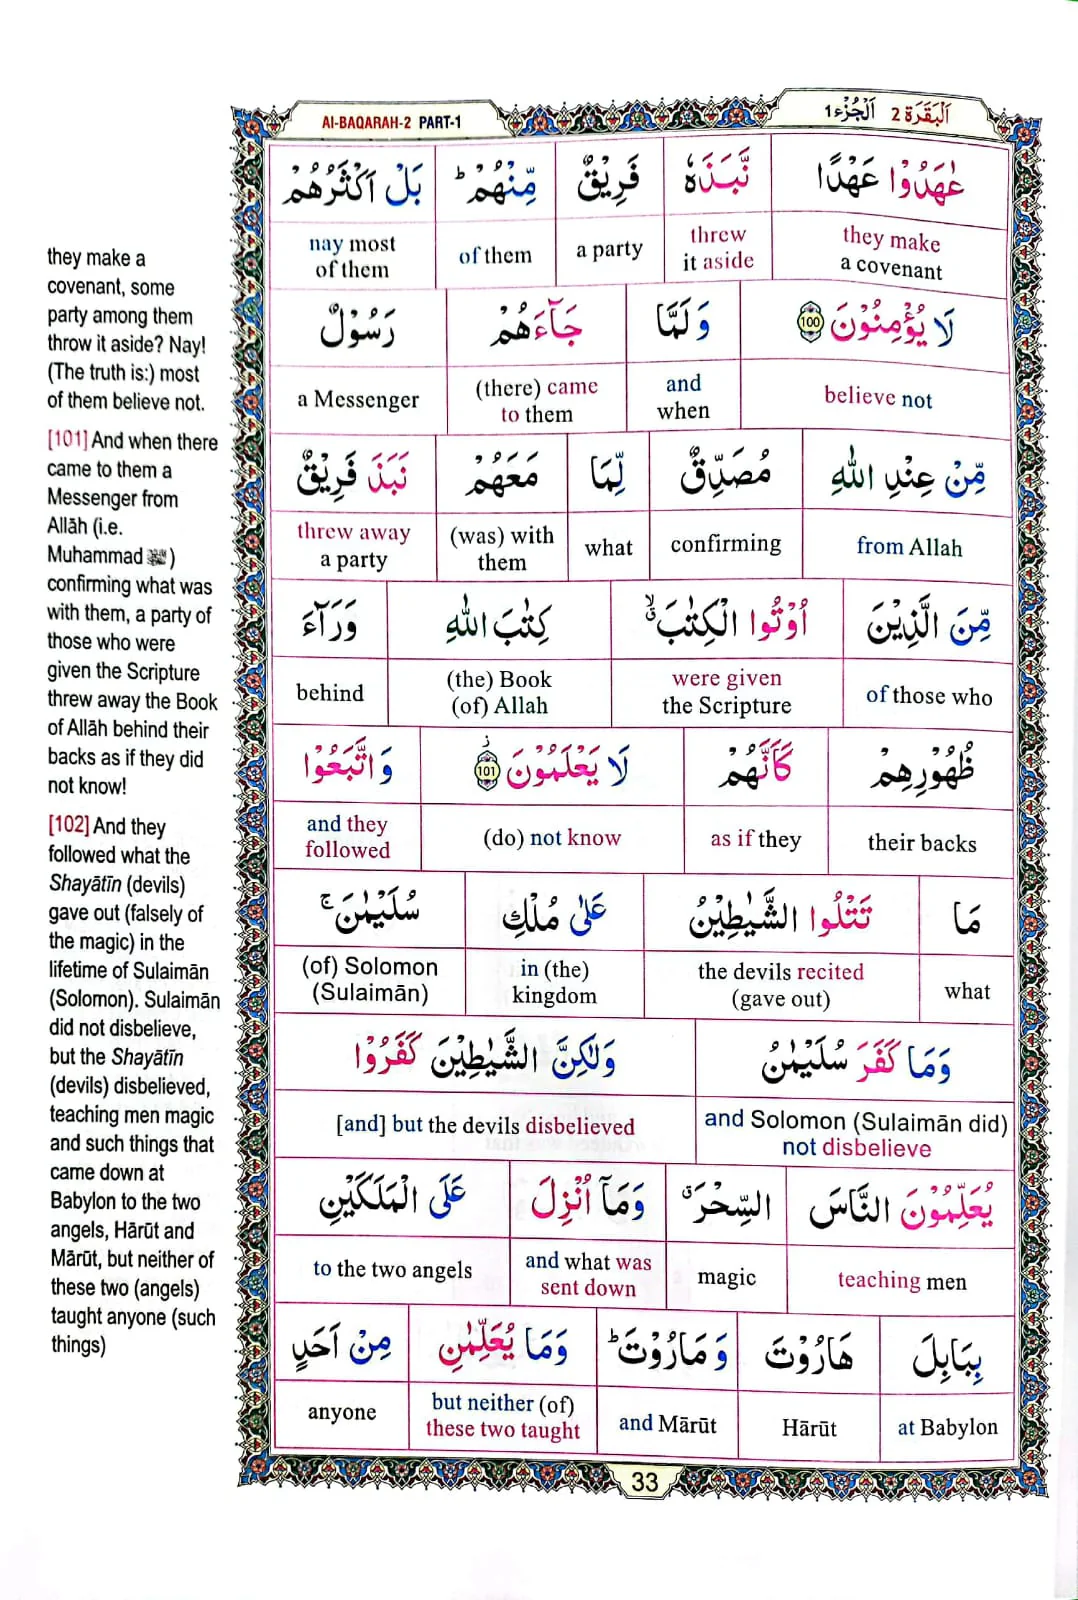 Al-BAQARAH-2 PART-1
اَلْبَقَرَة 2 اَلْجُزْء 1
عٰهَدُوْا عَهْدًا نَّبَذَهٗ فَرِيْقٌ مِّنْهُمْ ؕ بَلْ اَكْثَرُهُمْ
they make a covenant threw it aside a party of them nay most of them
لَا يُؤْمِنُوْنَ 100 وَلَمَّا جَآءَهُمْ رَسُوْلٌ
believe not and when (there) came to them a Messenger
مِّنْ عِنْدِ اللّٰهِ مُصَدِّقٌ لِّمَا مَعَهُمْ نَبَذَ فَرِيْقٌ
from Allah confirming what (was) with them threw away a party
مِّنَ الَّذِيْنَ اُوْتُوا الْكِتٰبَ ۙ كِتٰبَ اللّٰهِ وَرَآءَ
of those who were given the Scripture (the) Book (of) Allah behind
ظُهُوْرِهِمْ كَاَنَّهُمْ لَا يَعْلَمُوْنَ 101 وَاتَّبَعُوْا
their backs as if they (do) not know and they followed
مَا تَتْلُوا الشَّيٰطِيْنُ عَلٰى مُلْكِ سُلَيْمٰنَ ۚ
what the devils recited (gave out) in (the) kingdom (of) Solomon (Sulaimān)
وَمَا كَفَرَ سُلَيْمٰنُ وَلٰكِنَّ الشَّيٰطِيْنَ كَفَرُوْا
and Solomon (Sulaimān did) not disbelieve [and] but the devils disbelieved
يُعَلِّمُوْنَ النَّاسَ السِّحْرَ ۗ وَمَآ اُنْزِلَ عَلَى الْمَلَكَيْنِ
teaching men magic and what was sent down to the two angels
بِبَابِلَ هَارُوْتَ وَمَارُوْتَ ؕ وَمَا يُعَلِّمٰنِ مِنْ اَحَدٍ
at Babylon Hārūt and Mārūt but neither (of) these two taught anyone
they make a
covenant, some
party among them
throw it aside? Nay!
(The truth is:) most
of them believe not.
[101] And when there
came to them a
Messenger from
Allāh (i.e.
Muhammad ﷺ)
confirming what was
with them, a party of
those who were
given the Scripture
threw away the Book
of Allāh behind their
backs as if they did
not know!
[102] And they
followed what the
Shayātīn (devils)
gave out (falsely of
the magic) in the
lifetime of Sulaimān
(Solomon). Sulaimān
did not disbelieve,
but the Shayātīn
(devils) disbelieved,
teaching men magic
and such things that
came down at
Babylon to the two
angels, Hārūt and
Mārūt, but neither of
these two (angels)
taught anyone (such
things)
33